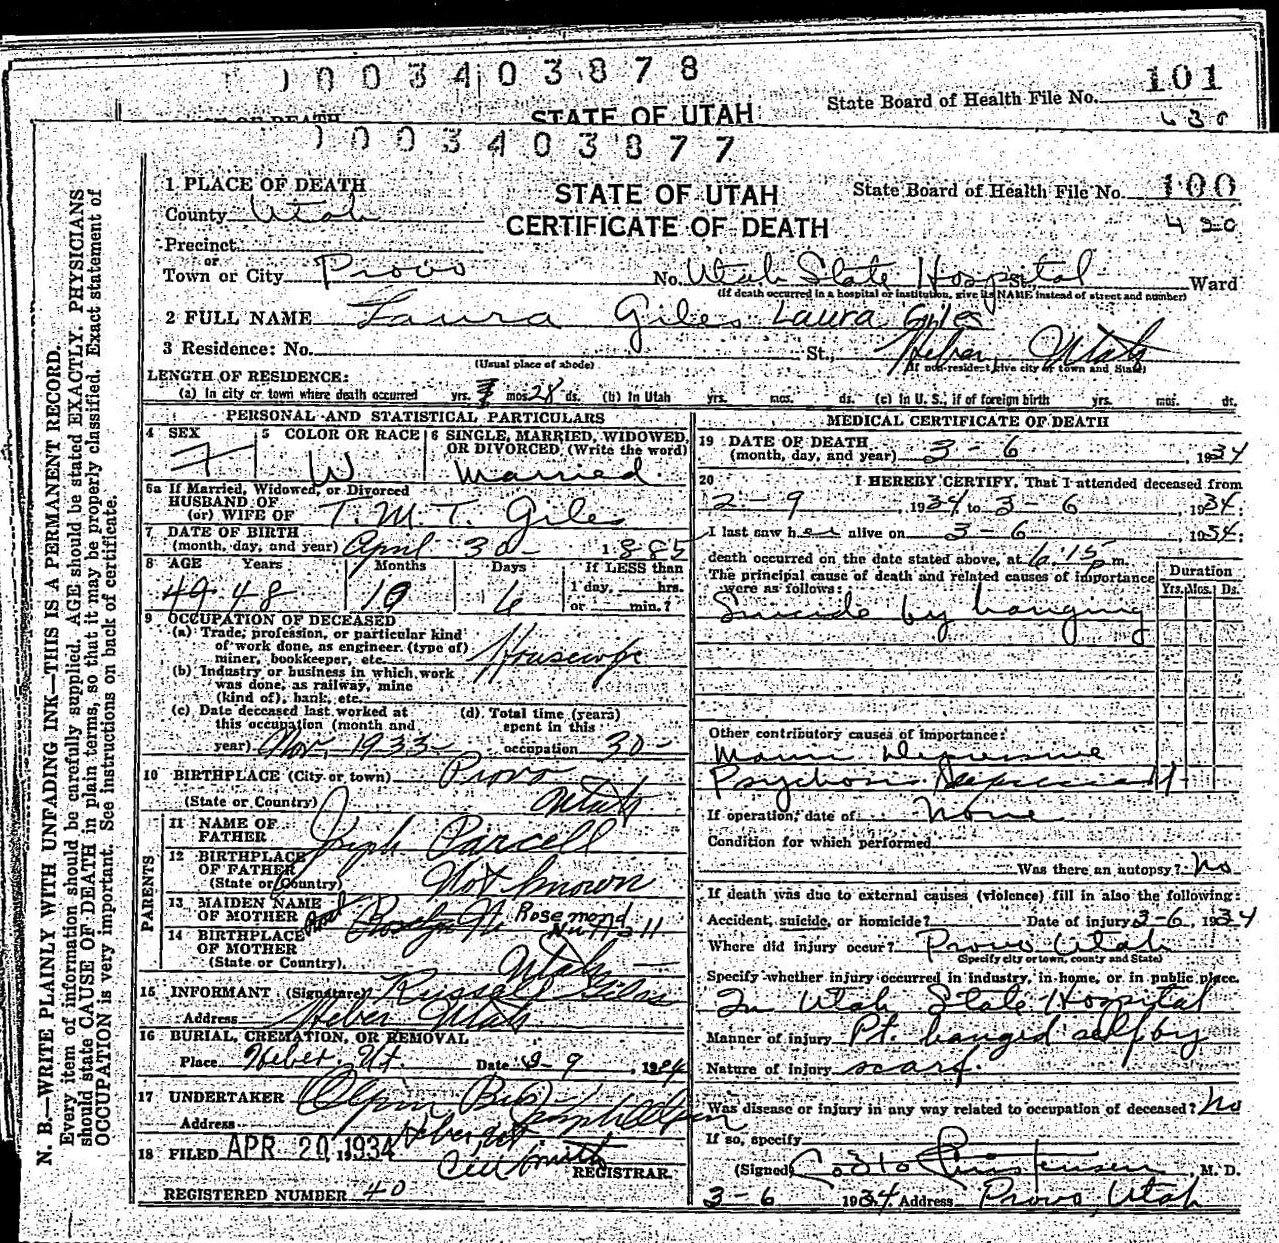 1003403878
101
State Board of Health File No.
STATE OF UTAH
1003403877
1 PLACE OF DEATH
STATE OF UTAH
State Board of Health File No. 100
County Utah
CERTIFICATE OF DEATH
Precinct
or
Town or City Provo No. Utah State Hospital St., Ward
(If death occurred in a hospital or institution, give its NAME instead of street and number)
2 FULL NAME Laura Giles Laura Giles
3 Residence: No. St., Heber, Utah
(Usual place of abode) (If non-resident give city or town and State)
LENGTH OF RESIDENCE:
(a) In city or town where death occurred yrs. mos. 28 ds. (b) In Utah yrs. mos. ds. (c) In U. S., if of foreign birth yrs. mos. ds.
PERSONAL AND STATISTICAL PARTICULARS
4 SEX 5 COLOR OR RACE 6 SINGLE, MARRIED, WIDOWED,
OR DIVORCED (Write the word)
F W Married
6a If Married, Widowed, or Divorced
HUSBAND OF
(or) WIFE OF T. M. T. Giles
7 DATE OF BIRTH
(month, day, and year) April 30 1885
8 AGE Years Months Days If LESS than
1 day, hrs.
49 48 10 6 or min.?
9 OCCUPATION OF DECEASED
(a) Trade, profession, or particular kind
of work done, as engineer, (type of)
miner, bookkeeper, etc. Housewife
(b) Industry or business in which work
was done, as railway, mine
(kind of), bank, etc.
(c) Date deceased last worked at
this occupation (month and
year) Nov. 1933
(d) Total time (years)
spent in this
occupation 30
10 BIRTHPLACE (City or town) Provo
(State or Country) Utah
PARENTS
11 NAME OF
FATHER Joseph Parcell
12 BIRTHPLACE
OF FATHER
(State or Country) Not known
13 MAIDEN NAME
OF MOTHER Rosemond
14 BIRTHPLACE
OF MOTHER
(State or Country) Utah
15 INFORMANT (Signature) Russell Giles
Address Heber Utah
16 BURIAL, CREMATION, OR REMOVAL
Place Heber, Ut. Date 3-9, 1934
17 UNDERTAKER Olpin Bros
Address Heber Ut
18 FILED APR 20 1934
REGISTRAR.
REGISTERED NUMBER 40
MEDICAL CERTIFICATE OF DEATH
19 DATE OF DEATH
(month, day, and year) 3-6, 1934
20 I HEREBY CERTIFY, That I attended deceased from
2-9, 1934 to 3-6, 1934.
I last saw her alive on 3-6 1934;
death occurred on the date stated above, at 6:15 p m.
The principal cause of death and related causes of importance
were as follows:
Duration
Yrs. Mos. Ds.
Suicide by hanging
Other contributory causes of importance:
Manic Depressive
Psychosis Depressed
If operation, date of None
Condition for which performed
Was there an autopsy? No
If death was due to external causes (violence) fill in also the following:
Accident, suicide, or homicide? Date of injury 3-6, 1934
Where did injury occur? Provo Utah
(Specify city or town, county and State)
Specify whether injury occurred in industry, in home, or in public place.
In Utah State Hospital
Manner of injury Pt. hanged self by
Nature of injury scarf.
Was disease or injury in any way related to occupation of deceased? No
If so, specify
(Signed) Christensen, M. D.
3-6 1934 Address Provo Utah
N. B.—WRITE PLAINLY WITH UNFADING INK—THIS IS A PERMANENT RECORD.
Every item of information should be carefully supplied. AGE should be stated EXACTLY. PHYSICIANS
should state CAUSE OF DEATH in plain terms, so that it may be properly classified. Exact statement of
OCCUPATION is very important. See instructions on back of certificate.